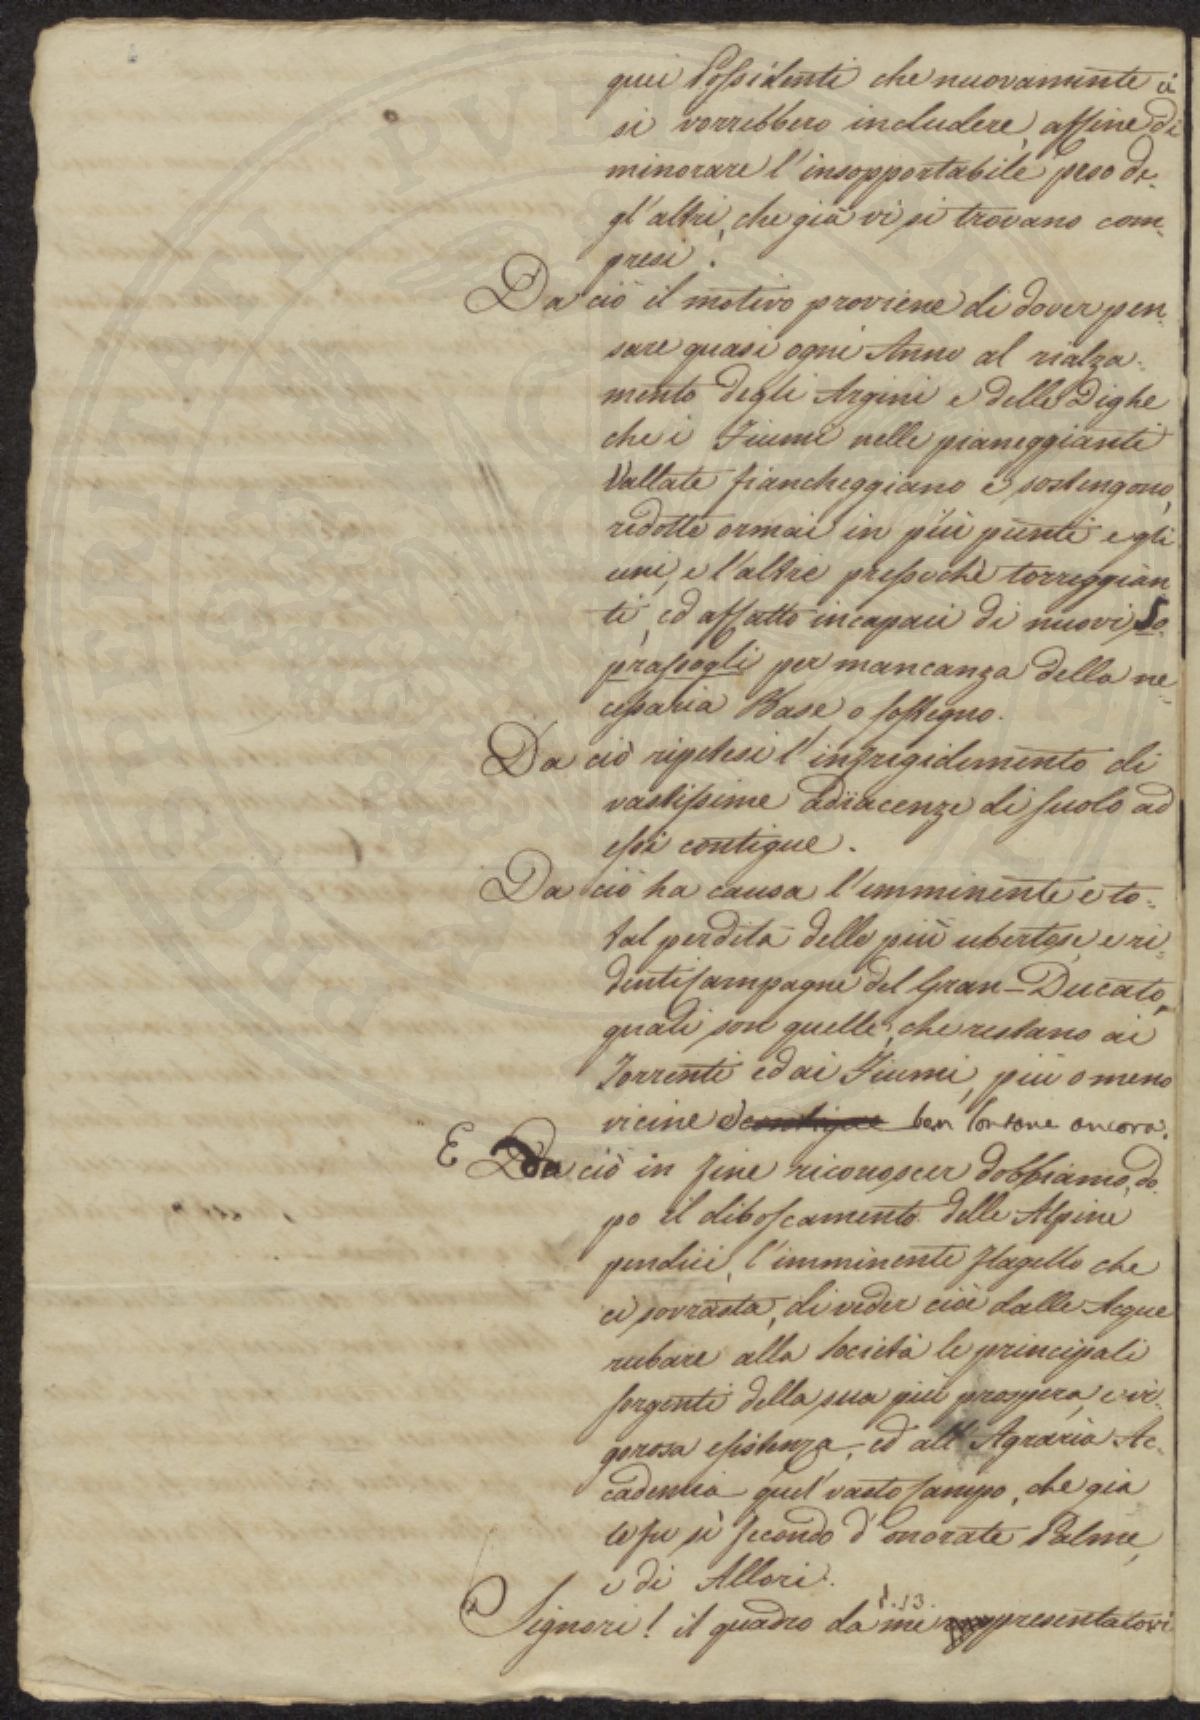 quei Possidenti che nuovamente vi
si vorrebbero includere, affine di
minorare l'insopportabile peso de-
gl'altri, che già vi si trovano com-
presi.
Da ciò il motivo proviene di dover pen-
sare quasi ogni Anno al rialza-
mento degli Argini e delle Dighe
che i Fiumi nelle pianeggianti
Vallate fiancheggiano e sostengono,
redotte ormai in più punti e gli
uni, e l'altre pressochè torreggian
ti, ed affatto incapaci di nuovi So-
prassogli per mancanza della ne-
cessaria Base o sostegno.
Da ciò ripetesi l'infrigidimento di
vastissime Adiacenze di suolo ad
essi contigue.
Da ciò ha causa l'imminente e to-
tal perdita delle più ubertose, e ri-
denti Campagne del Gran-Ducato,
quali son quelle, che restano ai
Torrenti ed ai Fiumi, più o meno
vicine e contigue ben lontane ancora.
E Da ciò in fine riconoscer dobbiamo, do
po il diboscamento delle Alpine
pendici, l'imminente flagello che
ci sovrasta, di veder cioè dalle Acque
rubare alla Società le principali
sorgenti della sua più prospera, e vi-
gorosa esistenza, ed all'Agraria Ac-
cademia quel vasto Campo, che già
le fu sì fecondo d'onorate Palme,
e di Allori.
§.13.
Signori! il quadro da me presentatovi